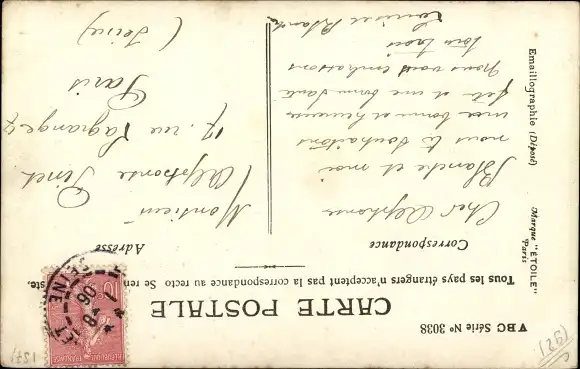 VBC Série Nº 3038
CARTE POSTALE
Tous les pays étrangers n'acceptent pas la correspondance au recto Se ren
ste.
Correspondance
Adresse
Cher Alphonse
Blanche et moi
nous te souhaitons
une bonne et heureuse
fête et une bonne santé
nous vous embrassons
tous trois
Louise Blanche
Monsieur
Alphonse Pinet
17 rue Lagrange
Paris
(Seine)
Emaillographie (Déposé)
Marque "ÉTOILE"
Paris
10
SEINE
06
(26)
(157)